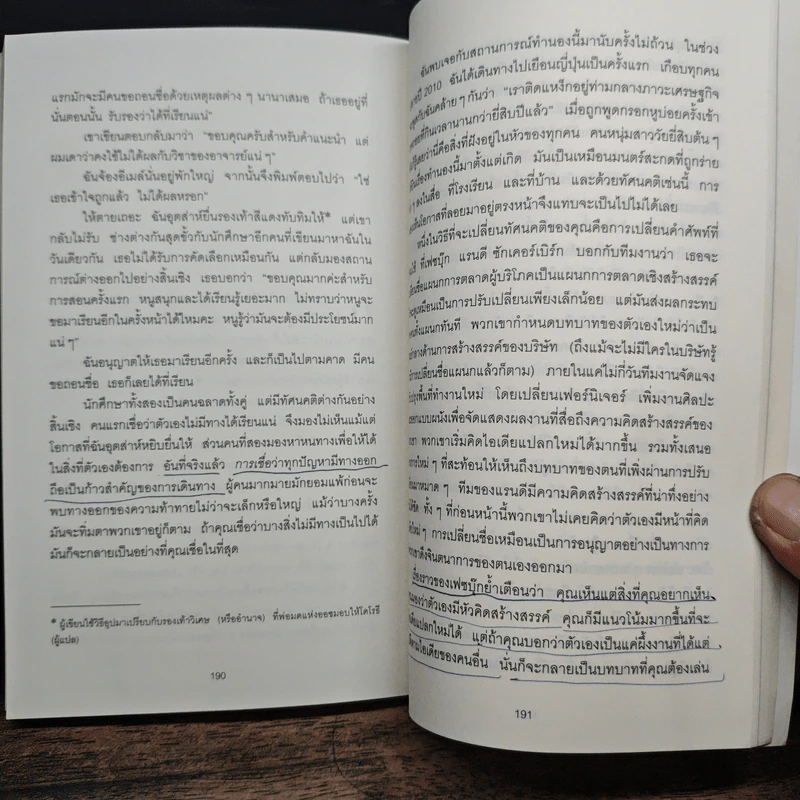 แรกมักจะมีคนขอถอนชื่อด้วยเหตุผลต่าง ๆ นานาเสมอ ถ้าเธออยู่ที่
นั่นตอนนั้น รับรองว่าได้ที่เรียนแน่
เขาเขียนตอบกลับมาว่า “ขอบคุณครับสำหรับคำแนะนำ แต่
ผมเดาว่าคงใช้ไม่ได้ผลกับวิชาของอาจารย์แน่ ๆ”
ฉันจ้องอีเมลนั่นอยู่พักใหญ่ จากนั้นจึงพิมพ์ตอบไปว่า “ใช่
เธอเข้าใจถูกแล้ว ไม่ได้ผลหรอก”
ให้ตายเถอะ ฉันอุตส่าห์ยื่นรองเท้าสีแดงทับทิมให้* แต่เขา
กลับไม่รับ ช่างต่างกันสุดขั้วกับนักศึกษาอีกคนที่เขียนมาหาฉันใน
วันเดียวกัน เธอไม่ได้รับการคัดเลือกเหมือนกัน แต่กลับมองสถาน
การณ์ต่างออกไปอย่างสิ้นเชิง เธอบอกว่า “ขอบคุณมากค่ะสำหรับ
การสอนครั้งแรก หนูสนุกและได้เรียนรู้เยอะมาก ไม่ทราบว่าหนูจะ
ขอมาเรียนอีกในครั้งหน้าได้ไหมคะ หนูรู้ว่ามันจะต้องมีประโยชน์มาก
แน่ ๆ”
ฉันอนุญาตให้เธอมาเรียนอีกครั้ง และก็เป็นไปตามคาด มีคน
ขอถอนชื่อ เธอก็เลยได้ที่เรียน
นักศึกษาทั้งสองเป็นคนฉลาดทั้งคู่ แต่มีทัศนคติต่างกันอย่าง
สิ้นเชิง คนแรกเชื่อว่าตัวเองไม่มีทางได้เรียนแน่ จึงมองไม่เห็นแม้แต่
โอกาสที่ฉันอุตส่าห์หยิบยื่นให้ ส่วนคนที่สองมองหาหนทางเพื่อให้ได้
ในสิ่งที่ตัวเองต้องการ อันที่จริงแล้ว การเชื่อว่าทุกปัญหามีทางออก
ถือเป็นก้าวสำคัญของการเดินทาง ผู้คนมากมายมักยอมแพ้ก่อนจะ
พบทางออกของความท้าทายไม่ว่าจะเล็กหรือใหญ่ แม้ว่าบางครั้ง
มันจะทิ่มตาพวกเขาอยู่ก็ตาม ถ้าคุณเชื่อว่าบางสิ่งไม่มีทางเป็นไปได้
มันก็จะกลายเป็นอย่างที่คุณเชื่อในที่สุด
* ผู้เขียนใช้วิธีอุปมาเปรียบกับรองเท้าวิเศษ (หรืออำนาจ) ที่พ่อมดแห่งออซมอบให้โดโรธี
(ผู้แปล)
190
ฉันพบเจอกับสถานการณ์ทำนองนี้มานับครั้งไม่ถ้วน ในช่วง
ปี 2010 ฉันได้เดินทางไปเยือนญี่ปุ่นเป็นครั้งแรก เกือบทุกคน
กับฉันคล้าย ๆ กันว่า “เราติดแหง็กอยู่ท่ามกลางภาวะเศรษฐกิจ
ที่กินเวลานานกว่ายี่สิบปีแล้ว” เมื่อถูกพูดกรอกหูบ่อยครั้งเข้า
ว่านี่คือสิ่งที่ฝังอยู่ในหัวของทุกคน คนหนุ่มสาววัยยี่สิบต้น ๆ
ทำนองนี้มาตั้งแต่เกิด มันเป็นเหมือนมนตร์สะกดที่ถูกร่าย
ในสื่อ ที่โรงเรียน และที่บ้าน และด้วยทัศนคติเช่นนี้ การ
โอกาสที่ลอยมาอยู่ตรงหน้าจึงแทบจะเป็นไปไม่ได้เลย
หนึ่งในวิธีที่จะเปลี่ยนทัศนคติของคุณคือการเปลี่ยนคำศัพท์ที่
ใช้ ที่เฟซบุ๊ก แรนดี ซักเคอร์เบิร์ก บอกกับทีมงานว่า เธอจะ
ชื่อแผนกการตลาดผู้บริโภคเป็นแผนกการตลาดเชิงสร้างสรรค์
เหมือนเป็นการปรับเปลี่ยนเพียงเล็กน้อย แต่มันส่งผลกระทบ
ทั้งแผนกทันที พวกเขากำหนดบทบาทของตัวเองใหม่ว่าเป็น
กลางด้านการสร้างสรรค์ของบริษัท (ถึงแม้จะไม่มีใครในบริษัทรู้
การเปลี่ยนชื่อแผนกแล้วก็ตาม) ภายในแค่ไม่กี่วันทีมงานจัดแจง
พื้นที่ทำงานใหม่ โดยเปลี่ยนเฟอร์นิเจอร์ เพิ่มงานศิลปะ
แบบผนังเพื่อจัดแสดงผลงานที่สื่อถึงความคิดสร้างสรรค์ของ
พวกเขาเริ่มคิดไอเดียแปลกใหม่ได้มากขึ้น รวมทั้งเสนอ
ใหม่ ๆ ที่สะท้อนให้เห็นถึงบทบาทของตนที่เพิ่งผ่านการปรับ
มาหมาด ๆ ทีมของแรนดีมีความคิดสร้างสรรค์ที่น่าทึ่งอย่าง
ทั้ง ๆ ที่ก่อนหน้านี้พวกเขาไม่เคยคิดว่าตัวเองมีหน้าที่คิด
ใหม่ ๆ การเปลี่ยนชื่อเหมือนเป็นการอนุญาตอย่างเป็นทางการ
เขาดึงจินตนาการของตนเองออกมา
เรื่องราวของเฟซบุ๊กย้ำเตือนว่า คุณเห็นแต่สิ่งที่คุณอยากเห็น
ว่าตัวเองมีหัวคิดสร้างสรรค์ คุณก็มีแนวโน้มมากขึ้นที่จะ
แปลกใหม่ได้ แต่ถ้าคุณบอกว่าตัวเองเป็นแค่ผึ้งงานที่ได้แต่
ไอเดียของคนอื่น นั่นก็จะกลายเป็นบทบาทที่คุณต้องเล่น
191